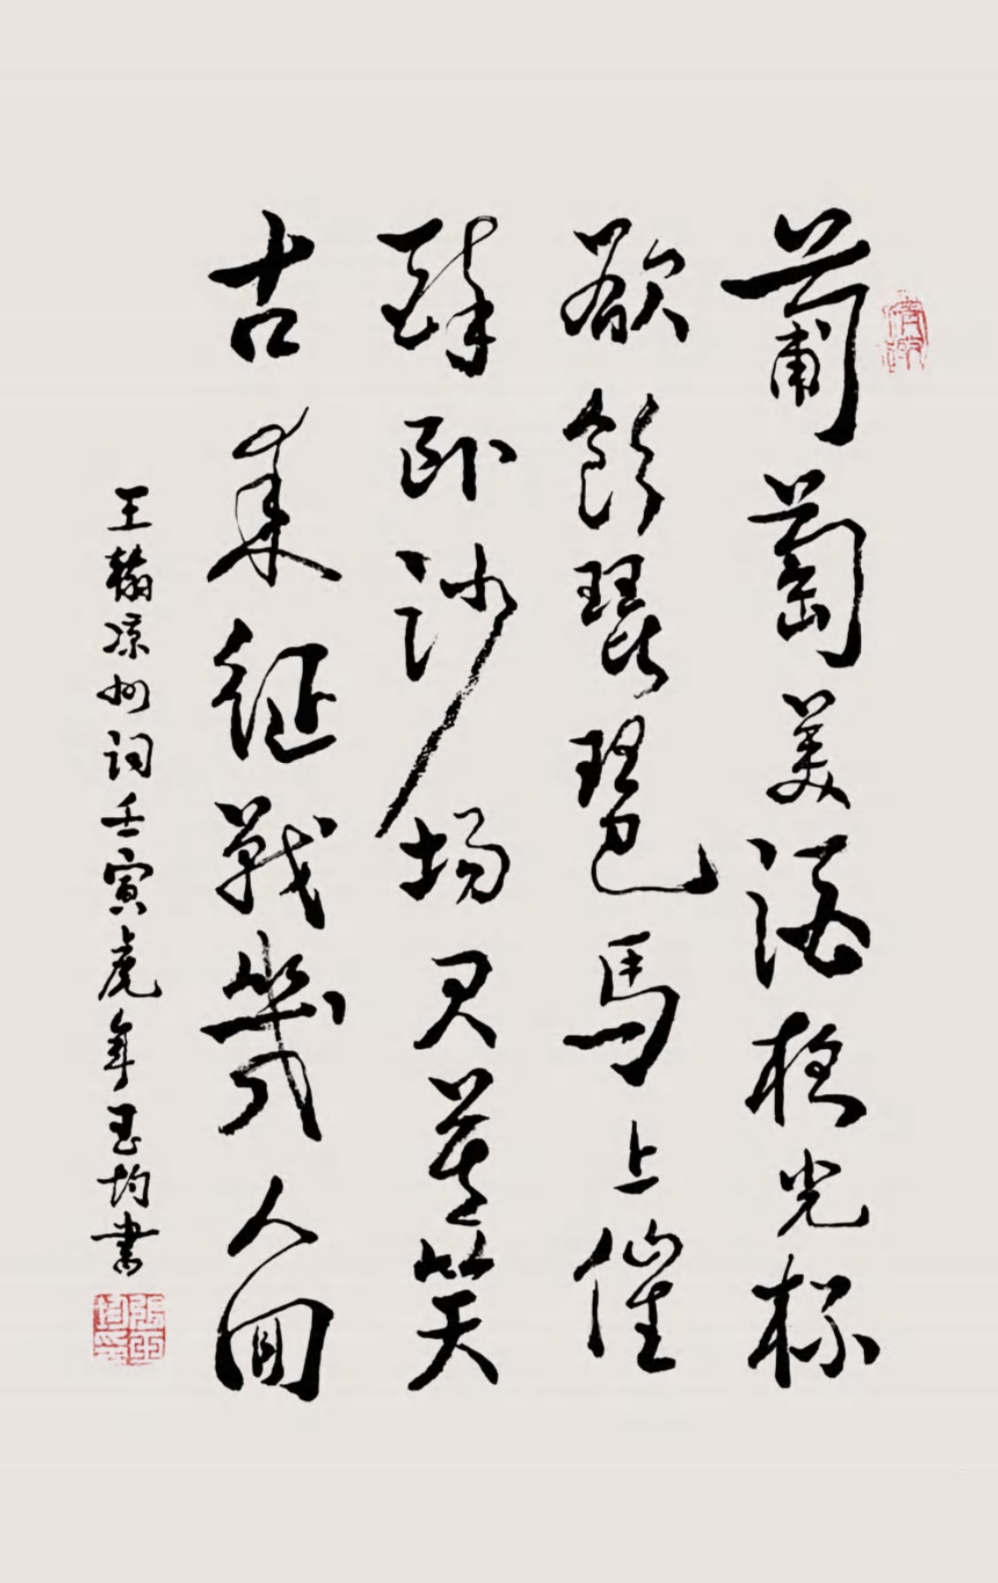 葡萄美酒夜光杯
欲飲琵琶馬上催
醉卧沙場君莫笑
古來征戰幾人回
王翰凉州词壬寅虎年玉均書